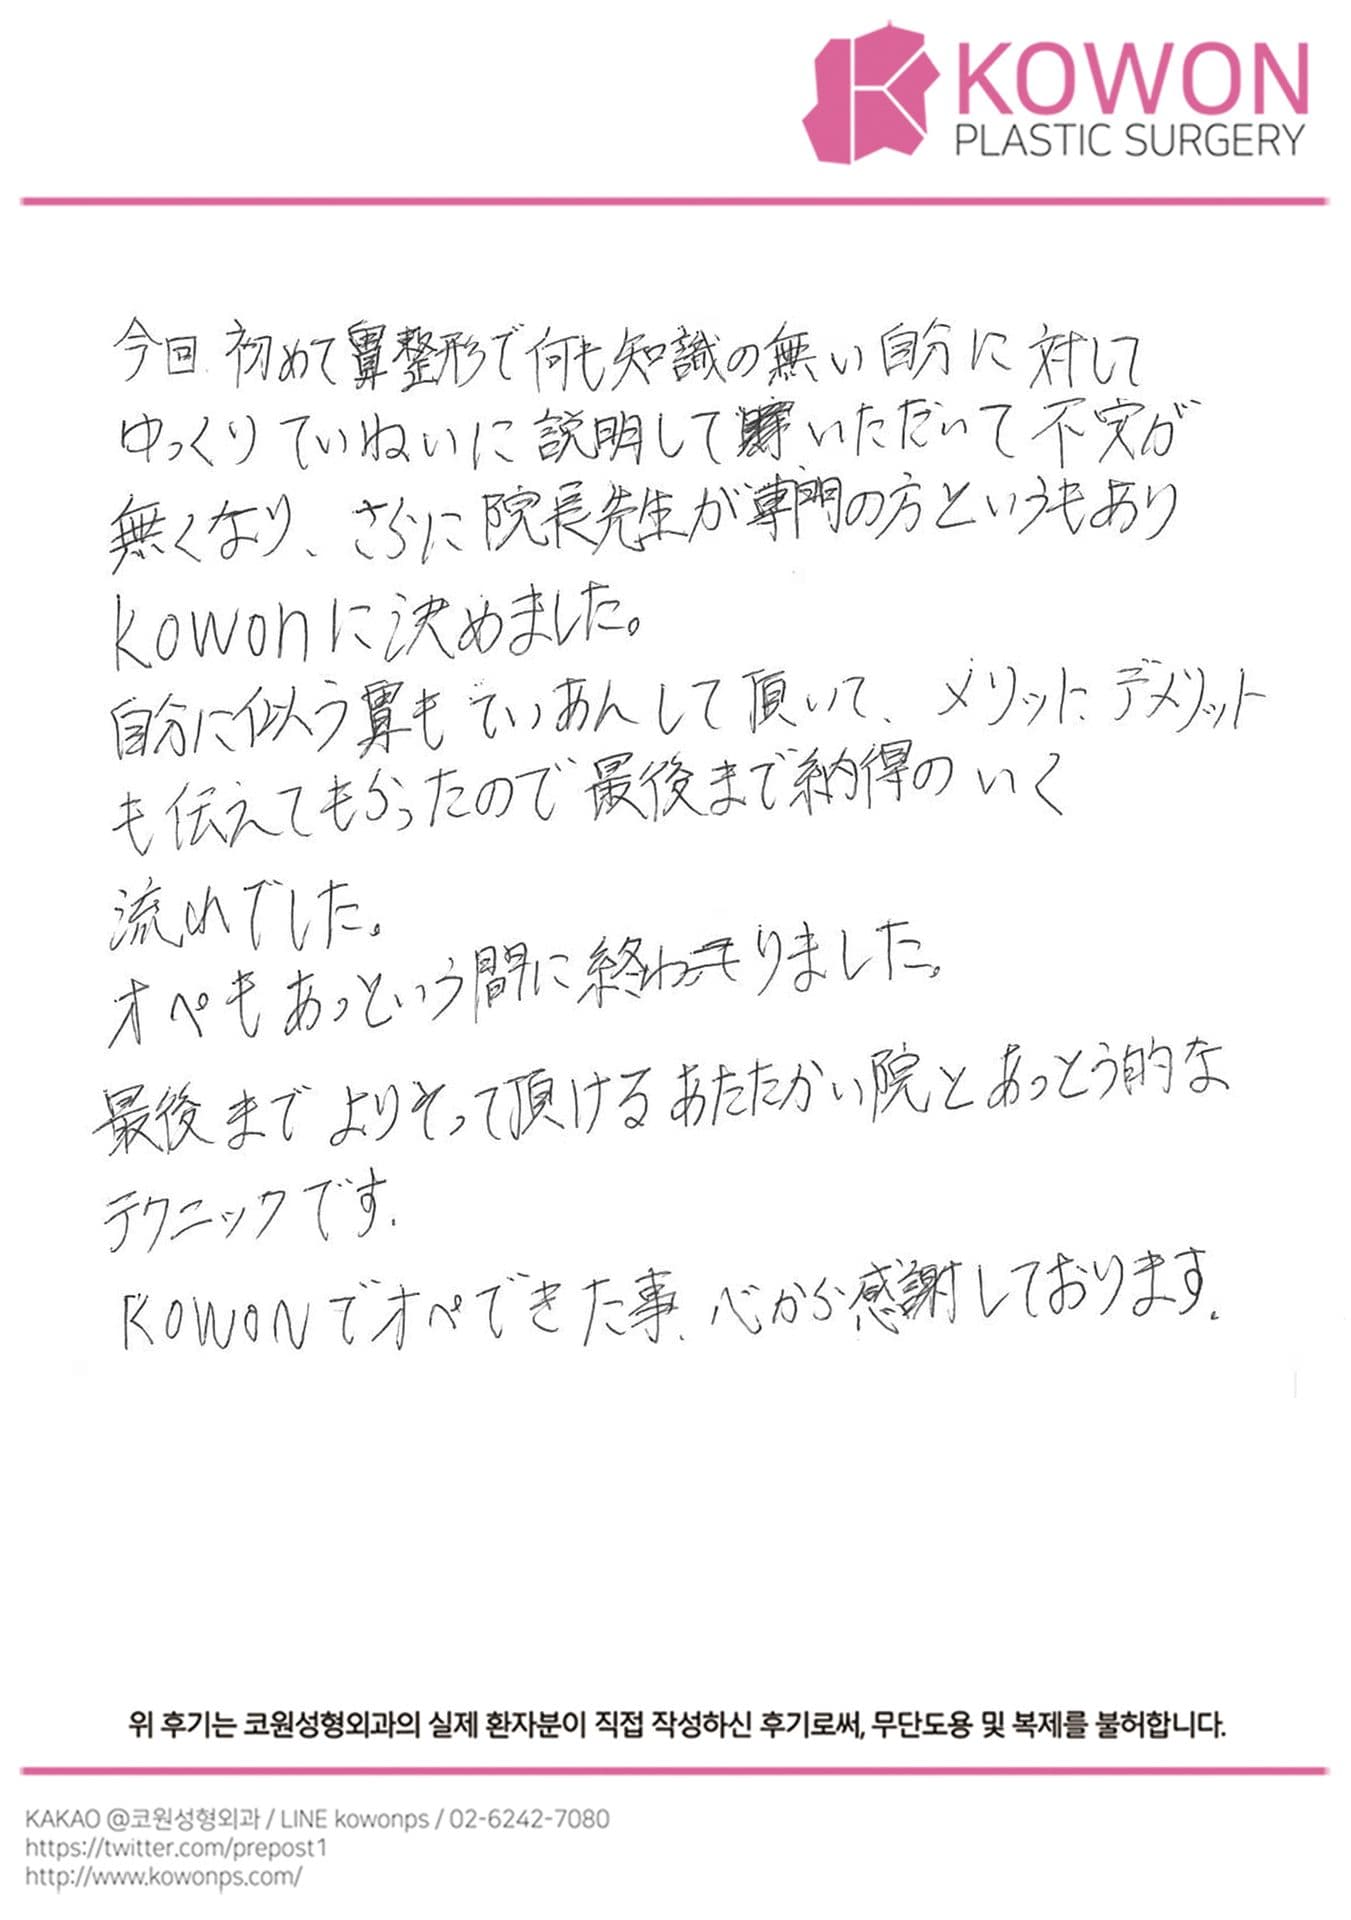 KOWON
PLASTIC SURGERY
今回.初めて鼻整形で何も知識の無い自分に対して
ゆっくりていねいに説明していただいて不安が
無くなり、さらに院長先生が専門の方というもあり
kowonに決めました。
自分に似う鼻もていあんして頂いて、メリット、デメリット
も伝えてもらったので最後まで納得のいく
流れでした。
オペもあっという間に終わりました。
最後までよりそって頂けるあたたかい院とあっとう的な
テクニックです.
KOWONでオペできた事、心から感謝しております.
위 후기는 코원성형외과의 실제 환자분이 직접 작성하신 후기로써, 무단도용 및 복제를 불허합니다.
KAKAO @코원성형외과 / LINE kowonps / 02-6242-7080
https://twitter.com/prepost1
http://www.kowonps.com/